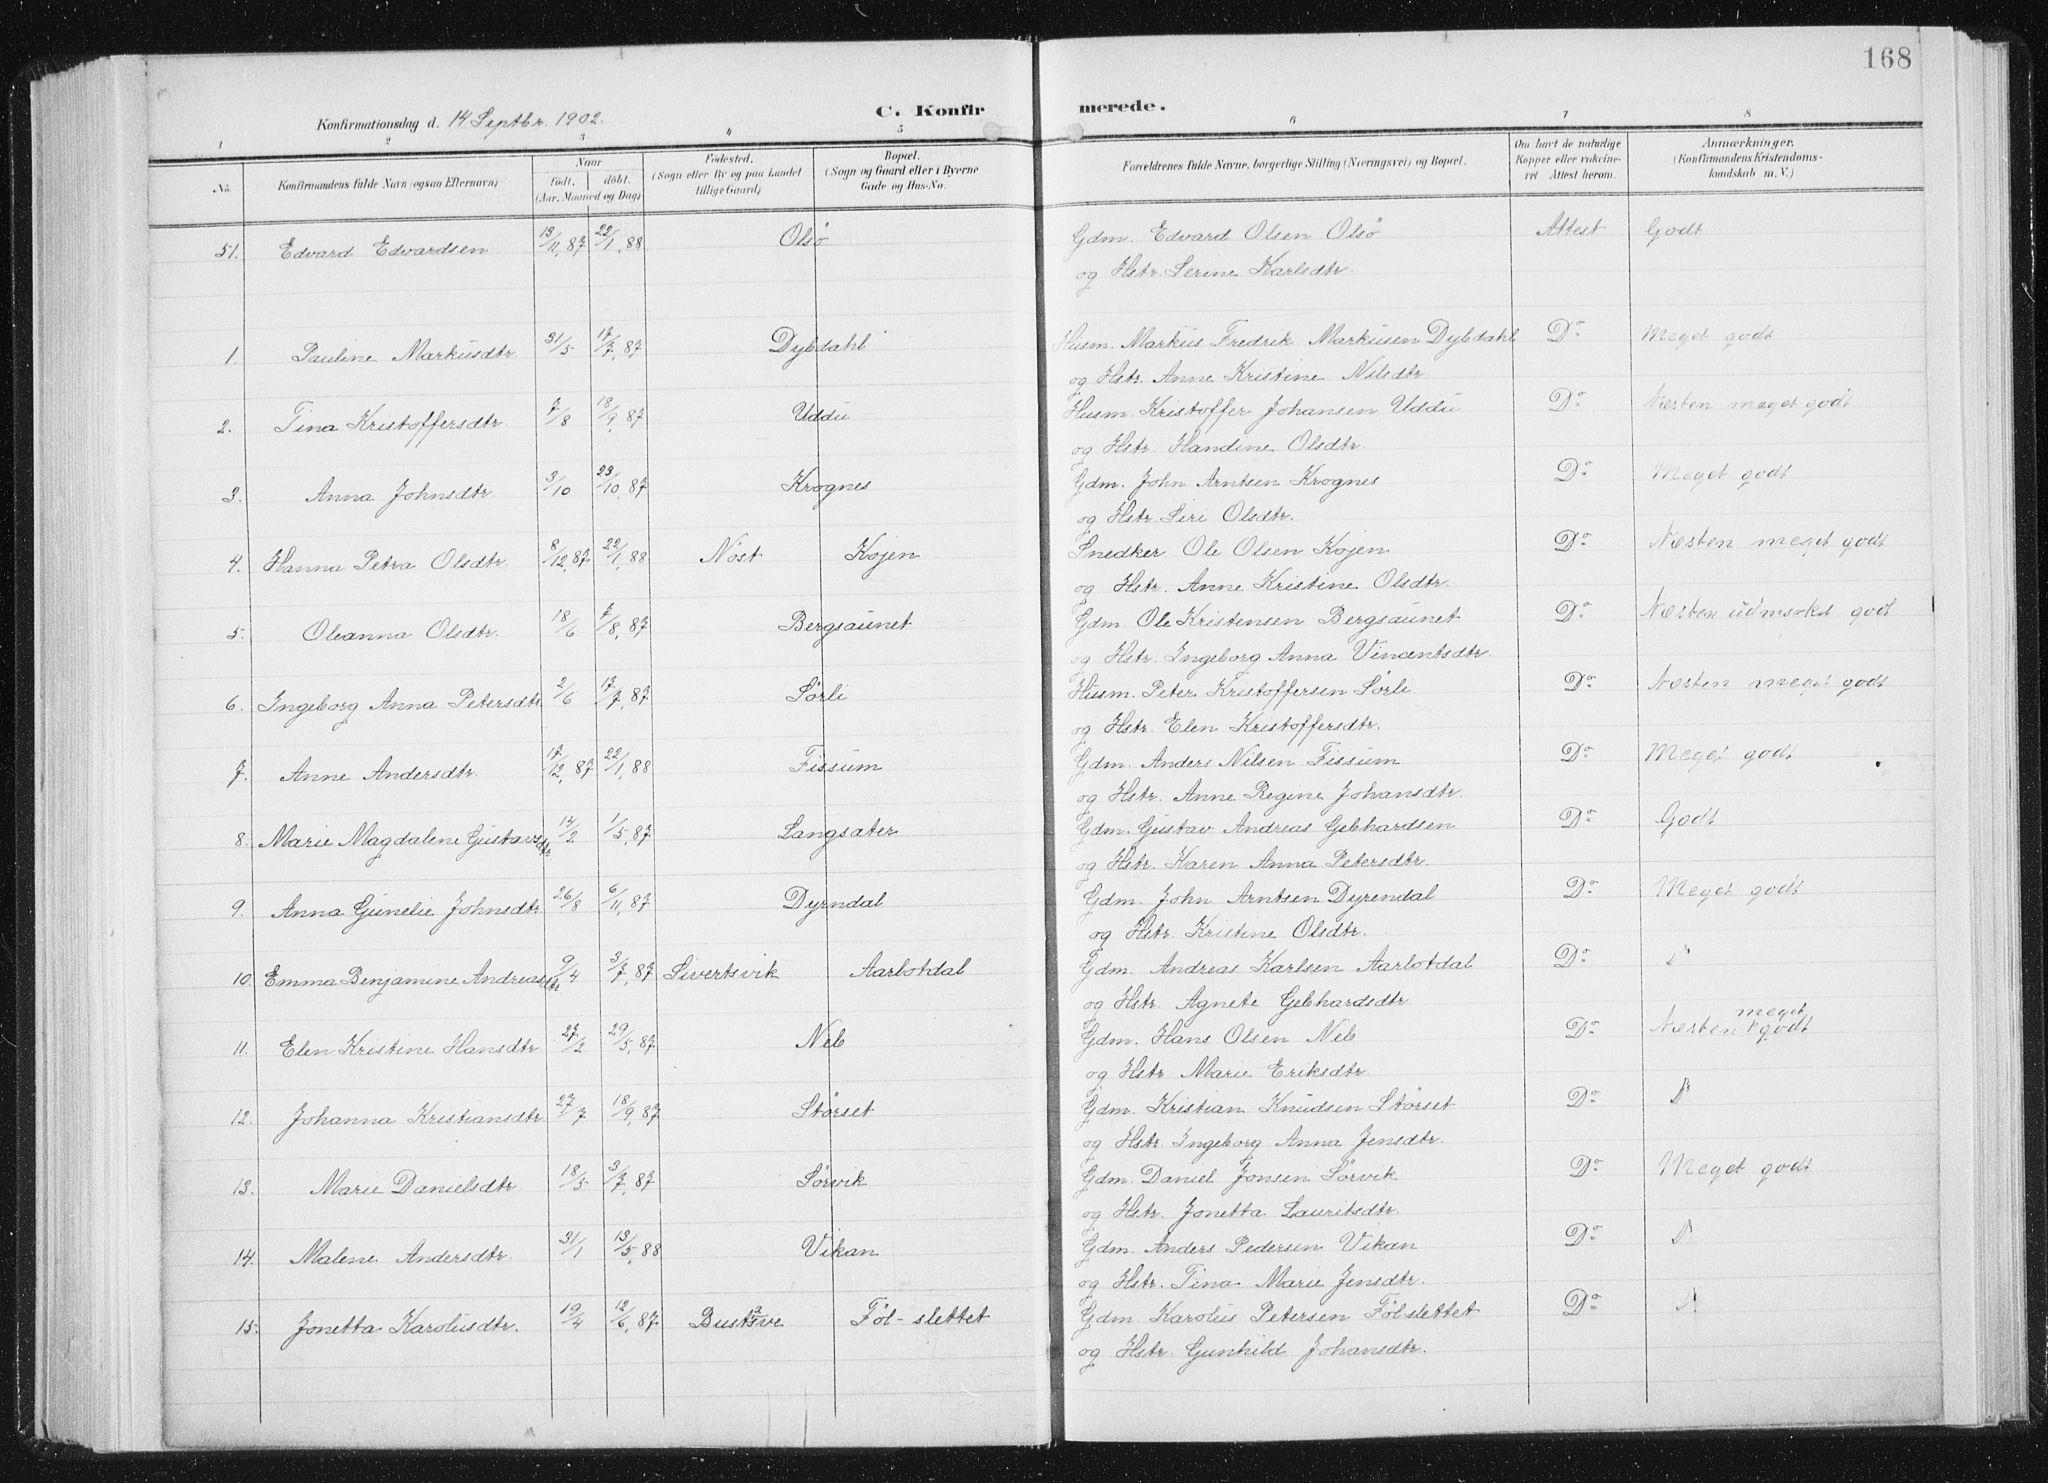 168
C. Konfirmerede.
Konfirmationsdag d. 14 Septbr. 1902.
1 2 3 4 5 6 7 8
No. Konfirmandens fulde Navn (ogsaa Efternavn) Naar Født. døbt. (Aar, Maaned og Dag) Fødested. (Sogn eller By og paa Landet tillige Gaard) Bopæl. (Sogn og Gaard eller i Byerne Gade og Hus-No. Forældrenes fulde Navne, borgerlige Stilling (Næringsvei) og Bopæl. Om havt de naturlige Kopper eller vakcineret Attest herom. Anmærkninger. (Konfirmandens Kristendomskundskab m. V.)
51. Edvard Edvardsen 13/11,87 22/1,88 Olsö Gdm. Edvard Olsen Olsö Attest Godt
og Hstr. Serine Karlsdtr.
1. Pauline Markusdtr. 31/5 17/7,87 Dybdahl Husm. Markus Fredrik Markusen Dybdahl Do Meget godt
og Hstr. Anne Kristine Nilsdtr.
2. Tina Kristoffersdtr. 7/8 18/9,87 Uddu Husm. Kristoffer Johansen Uddu Do Næsten meget godt
og Hstr. Handine Olsdtr.
3. Anna Johnsdtr. 3/10 23/10,87 Krognes Gdm. John Arntsen Krognes Do Meget godt
og Hstr. Siri Olsdtr.
4. Hanna Petra Olsdtr. 8/12,87 22/1,88 Nöst Kojen Snedker Ole Olsen Kojen Do Næsten meget godt
og Hstr. Anne Kristine Olsdtr.
5. Oleanna Olsdtr. 18/6 7/8,87 Bergsaunet Gdm. Ole Kristensen Bergsaunet Do Næsten udmærket godt
og Hstr. Ingeborg Anna Vincentsdtr.
6. Ingeborg Anna Petersdtr. 2/6 17/7,87 Sörli Husm. Peter Kristoffersen Sörli Do Næsten meget godt
og Hstr. Elen Kristoffersdtr.
7. Anne Andersdtr. 17/12,87 22/1,88 Fissum Gdm. Anders Nilsen Fissum Do Meget godt
og Hstr. Anne Regine Johansdtr.
8. Marie Magdalene Gustavsdtr 14/2 1/5,87 Langsæter Gdm. Gustav Andreas Gebhardsen Do Godt
og Hstr. Karen Anna Petersdtr.
9. Anna Gunelie Johnsdtr. 26/8 6/11,87 Dyrndal Gdm. John Arntsen Dyrendal Do Meget godt
og Hstr. Kristine Olsdtr.
10. Emma Benjamine Andreasdtr. 9/4 3/7,87 Sivertsvik Aarlotdal Gdm. Andreas Karlsen Aarlotdal Do
og Hstr. Agnete Gebhardsdtr.
11. Elen Kristine Hansdtr. 27/2 29/5,87 Neb Gdm. Hans Olsen Neb Do Næsten meget godt
og Hstr. Marie Eriksdtr.
12. Johanna Kristiansdtr. 27/7 18/9,87 Störset Gdm. Kristian Knudsen Störset Do
og Hstr. Ingeborg Anna Jensdtr.
13. Marie Danielsdtr. 18/5 3/7,87 Sörvik Gdm. Daniel Jonsen Sörvik Do Meget godt
og Hstr. Jonetta Lauritsdtr.
14. Malene Andersdtr. 31/1 13/5,88 Vikan Gdm. Anders Pedersen Vikan Do
og Hstr. Tina Marie Jensdtr.
15. Jonetta Karolusdtr. 19/4 12/6,87 Föl-slettet Gdm. Karolus Petersen Fölslettet Do
og Hstr. Gunhild Johansdtr.